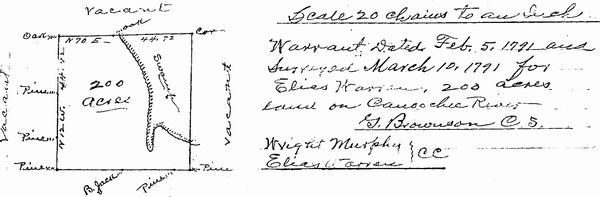 Vacant
oak
Oak
N 70 E
44.72
Cor
N 20 W. 44.72
200
acres
Swamp
Pine
Pine
Pine
Pine
Vacant
Vacant
B. Jack
Pine
Scale 20 chains to an Inch
Warrant Dated Feb. 5, 1791 and
Surveyed March 10, 1791 for
Elias Warren, 200 acres
land on Canoochee River
G. Brownson C.S.
Wright Murphy
Elias Warren } CC